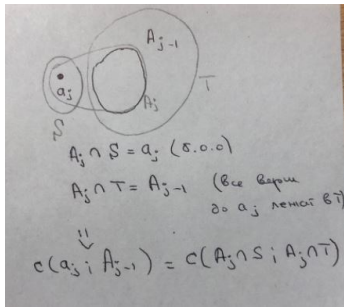 A_{j-1}
a_j
A_j
T
S
A_j ∩ S = a_j (б.о.о)
A_j ∩ T = A_{j-1} (все верш
до a_j лежат в T)
c(a_j; A_{j-1}) = c(A_j ∩ S; A_j ∩ T)